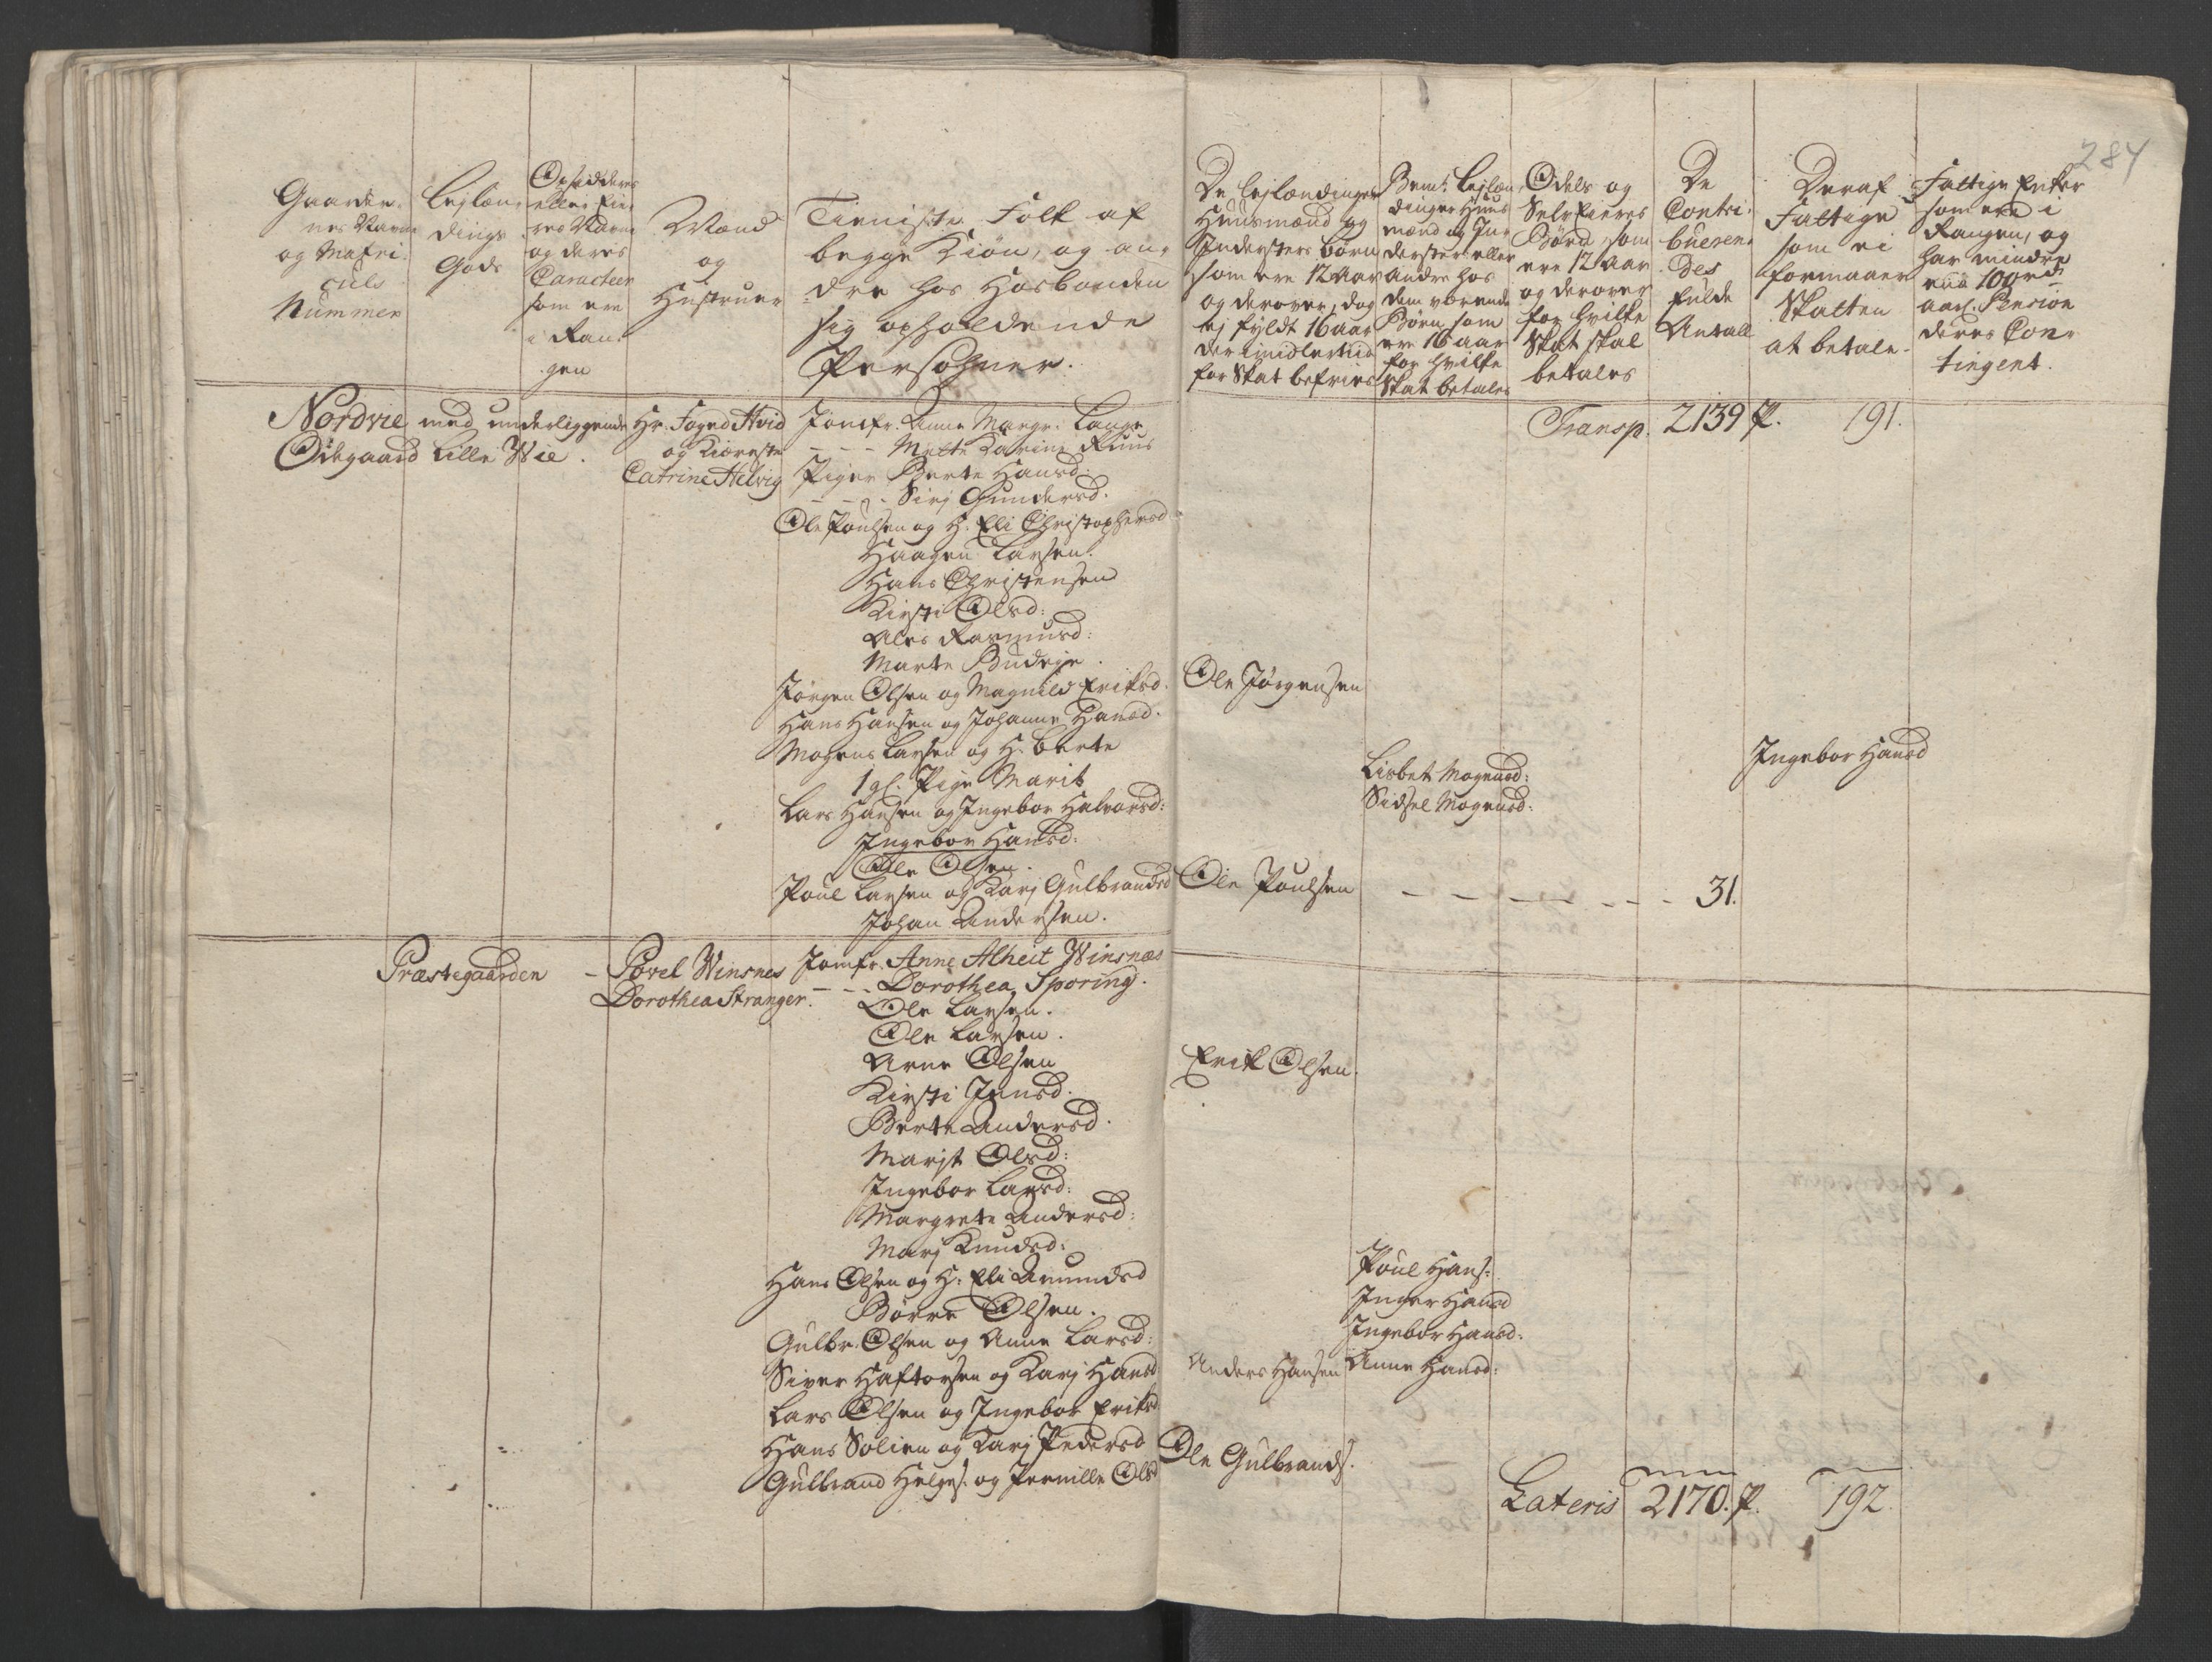 284
Gaarde-
nes Navne
og Matri-
culs
Nummer
Lejlæn-
dings
Gods
Opsiddere
eller Eie-
res Navne
og deres
Caracteer
som ere
i Ran-
gen
Mænd
og
Hustruer
Tieniste Folk af
begge Kiøn, og an-
dre hos Hosbonden
sig opholdende
Persohner.
De Lejlændinger
Huusmænd og
Inderster børn
som ere 12 Aar
og derover, dog
ej fyldt 16 aar
der imidlertiid
for Skat befries
Bemte Lejlæn-
dinger Huus
mænd og In-
derster eller
andre hos
dem værende
Børn som
ere 16 aar
for hvilke
Skat betales
Odels og
Selv Eieres
Børn, som
ere 12 Aar
og derover
for hvilke
Skat skal
betales
De
Contri-
bueren-
des
fulde
Antall
Deraf
Fattige
som ei
formaaer
Skatten
at betale.
Fattige Enker
som ere i
Rangen, og
har mindre
end 100 rd
aarl. Pension
deres Con-
tingent.
Transp. 2139 P. 191.
Nordvie med underliggende
Ødegaard Lille Wie.
Hr. Foged Hvid
og Kiæreste
Catrine Helvig
Jomfr. Anne Margr. Lange
- - - Mette Karine Kuus
Piger Berte Hansd:
- - - Sirj Gundersd.
Ole Poulsen og H. Eli Christophersd
Haagen Larsen.
Hans Christensen
Kirsti Olsd:
Ales Rasmusd:
Marte Budeje.
Jørgen Olsen og Magnild Eriksd.
Ole Jørgensen
Hans Hansen og Johanne Hansd.
Mogens Larsen og H. Berte
Lisbet Mogensd:
Ingebor Hansd
1 gl. Pige Marit
Sidsel Mogensd:
Lars Hansen og Ingebor Halvorsd:
Ingebor Hansd:
Ole Olsen.
Poul Larsen og Karj Gulbrandsd
Ole Poulsen - - - - - - - 31.
Johan Andersen.
Præstegaarden - Povel Winsnes
Dorothea Stranger.
Jomfr. Anne Alheit Winsnæs
- - - Dorothea Sporing.
Ole Larsen.
Ole Larsen.
Arne Olsen
Erik Olsen.
Kirsti Jensd.
Berte Andersd.
Marjt Olsd:
Ingebor Larsd:
Margrete Andersd:
Marj Knudsd:
Hans Olsen og H: Eli Amundsd
Poul Hans:
Børre Olsen.
Inger Hansd
Gulbr. Olsen og Anne Larsd:
Ingebor Hansd:
Siver Haftorsen og Karj Hansd
Anders Hansen
Anne Hansd:
Lars Olsen og Ingebor Eriksd
Hans Solien og Karj Pedersd
Ole Gulbrands.
Gulbrand Helges. og Pernille Olsd
Lateris 2170. P. 192.